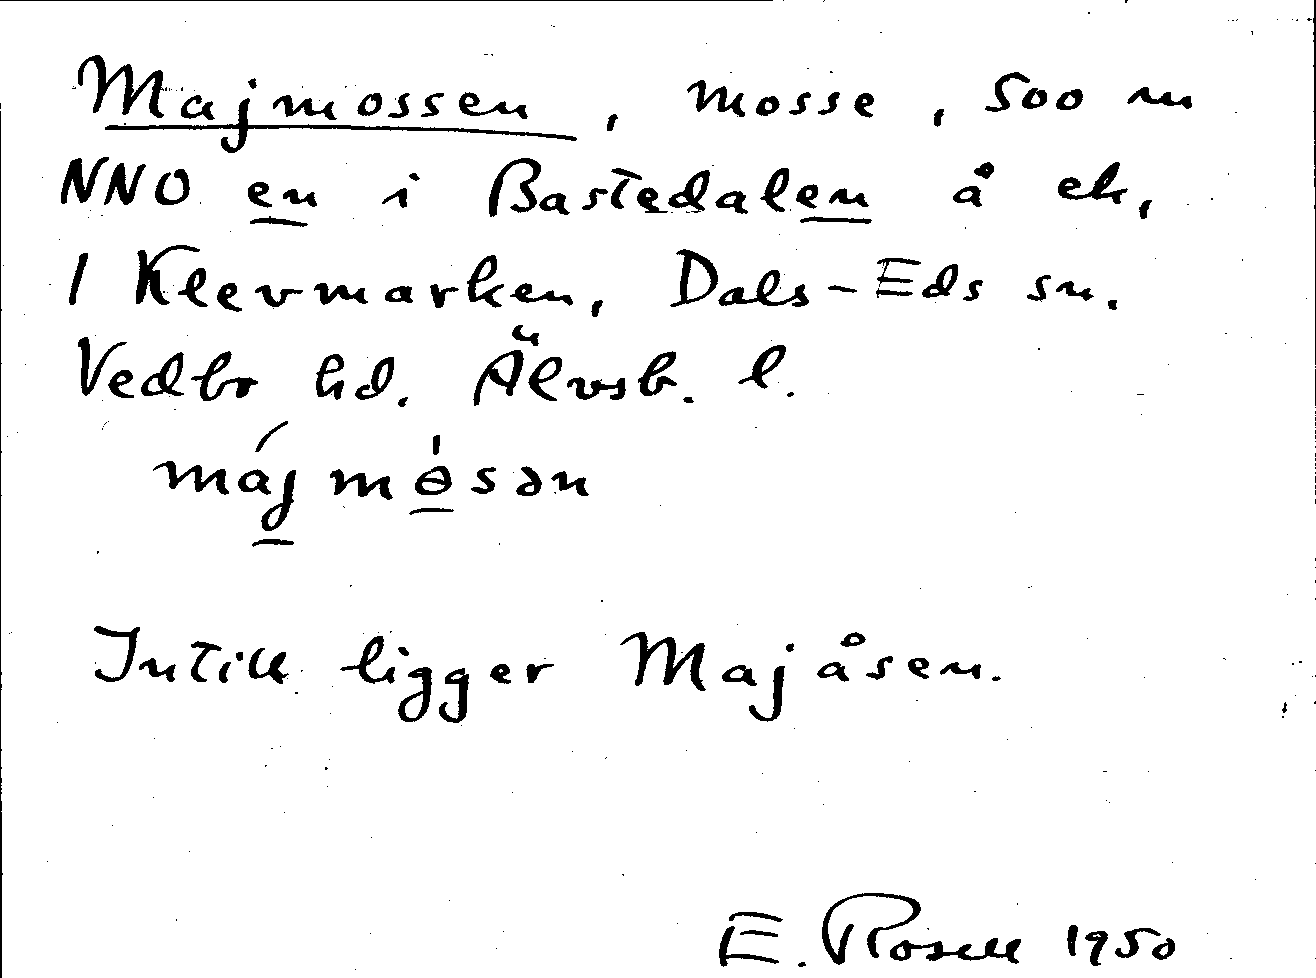 Majmossen, mosse, 500 m
NNO en i Bastedalen å ek,
1 Klevmarken, Dals-Eds sn.
Vedbo hd. Älvsb. l.
májmòsən
Intill ligger Majåsen.
E. Rosell 1950